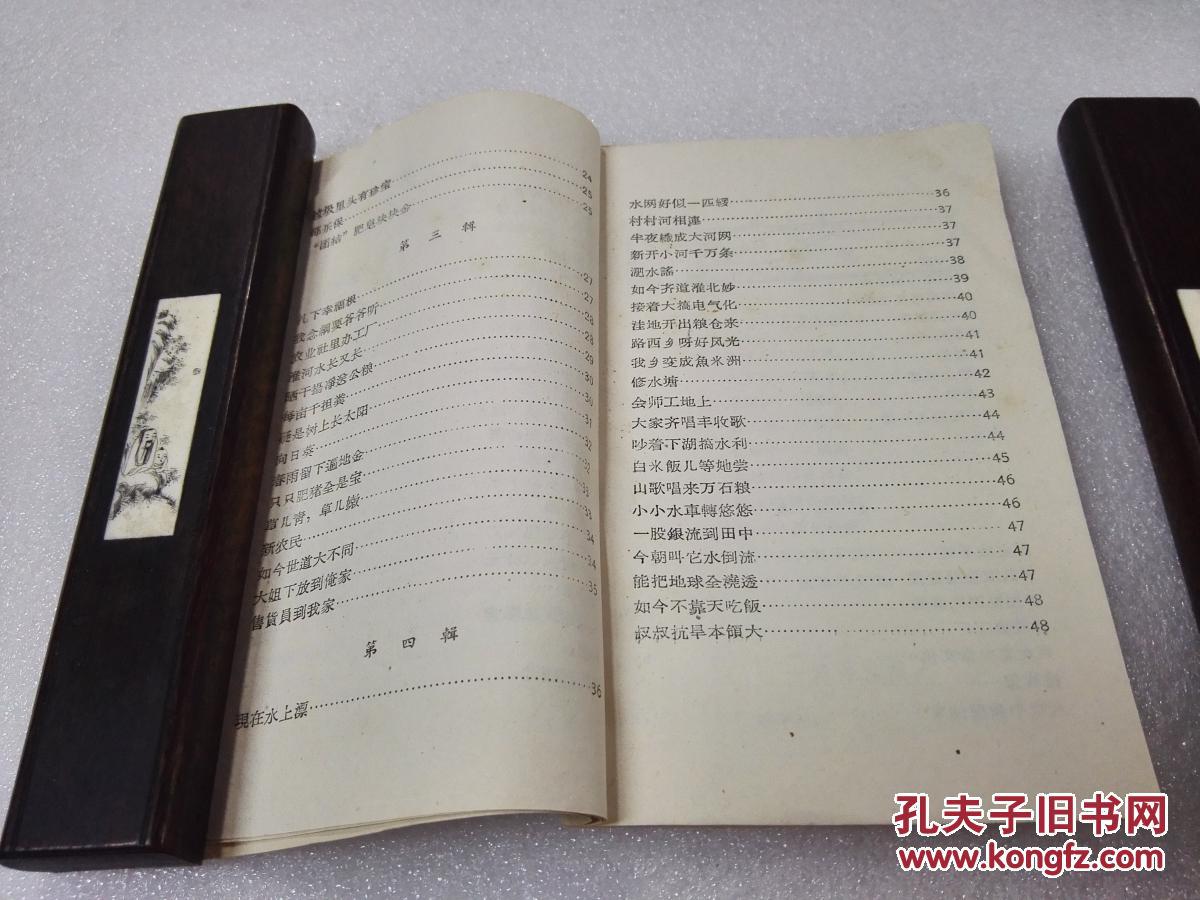 圾里头有珍宝……24
乐保……25
“团结”肥皂块块金……25
第三輯
扎下幸福根……27
念綱要爷爷听……27
农业社里办工厂……28
淮河水长又长……28
晒干揚凈送公粮……29
每亩千担粪……30
是树上长太阳……30
向日葵……31
春雨留下遍地金……32
只只肥猪全是宝……32
草儿青，草儿嫩……33
新农民……33
如今世道大不同……34
大姐下放到俺家……34
售貨員到我家……35
第四輯
現在水上漂……36
水网好似一匹綾……36
村村河相連……37
半夜織成大河网……37
新开小河千万条……37
水謠……38
如今齐道灌北妙……39
接着大搞电气化……40
洼地开出粮仓来……40
路西乡呀好风光……41
我乡变成魚米洲……41
修水塘……42
会师工地上……43
大家齐唱丰收歌……44
吵着下湖搞水利……44
白米飯儿等她尝……45
山歌唱来万石粮……46
小小水車轉悠悠……46
一股銀流到田中……47
今朝叫它水倒流……47
能把地球全澆透……47
如今不靠天吃飯……48
叔叔抗旱本領大……48
孔夫子旧书网
www.kongfz.com